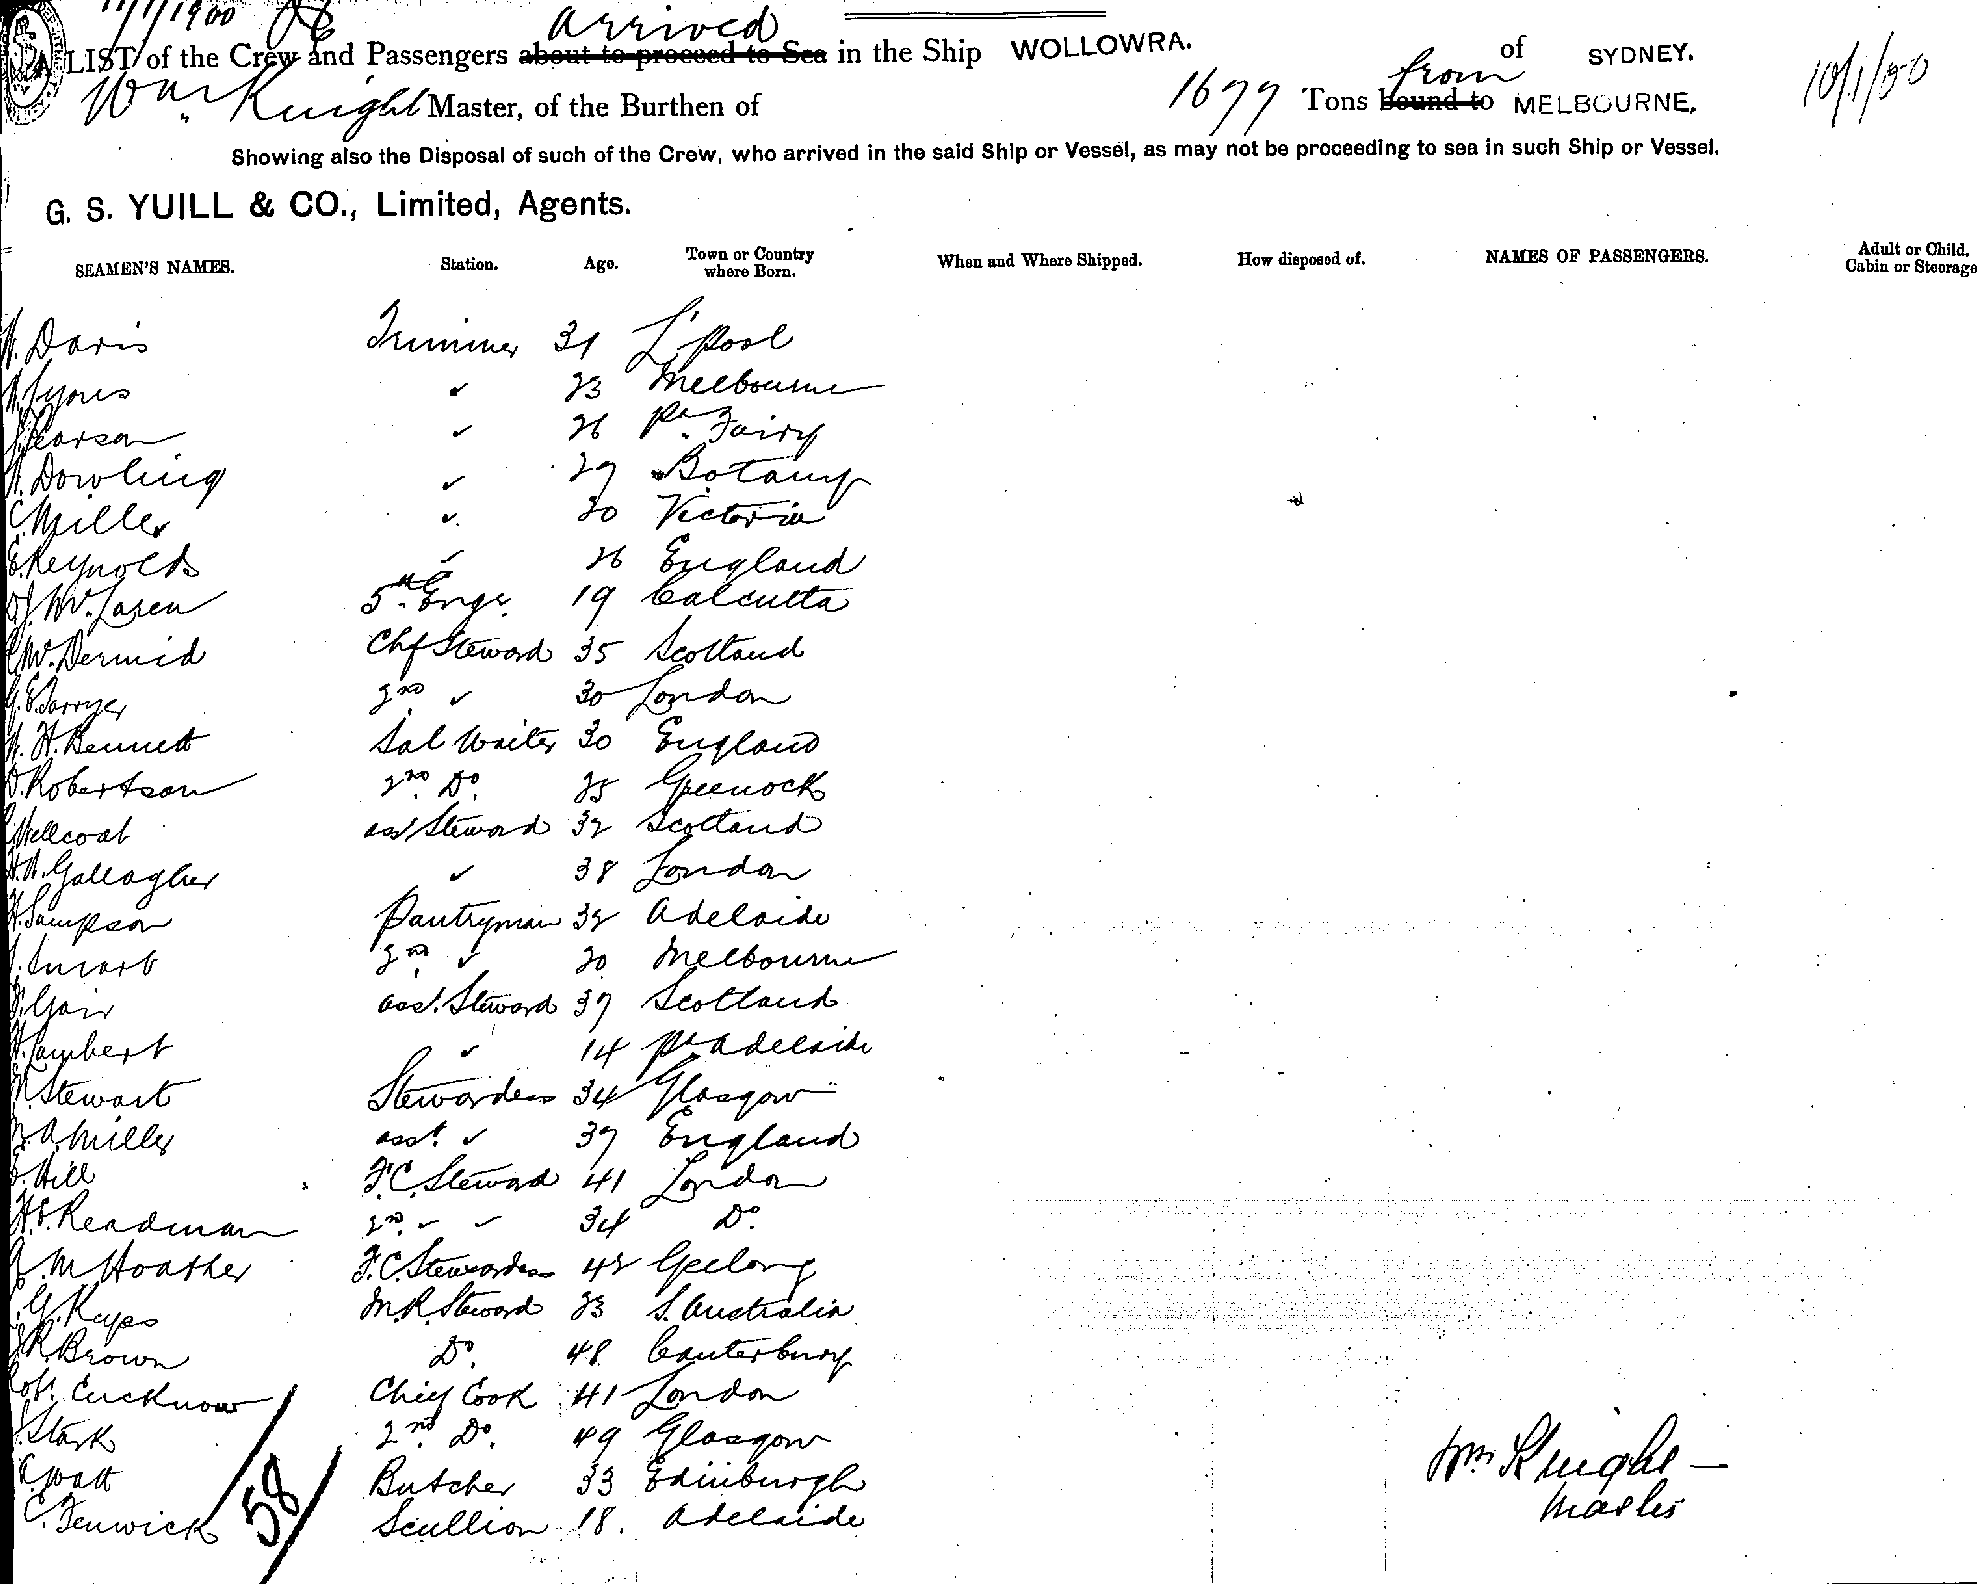 11/1/1900
arrived
A LIST of the Crew and Passengers about to proceed to Sea in the Ship WOLLOWRA. of SYDNEY.
10/1/00
Wm Knight Master, of the Burthen of 1677 Tons bound to from MELBOURNE.
Showing also the Disposal of such of the Crew, who arrived in the said Ship or Vessel, as may not be proceeding to sea in such Ship or Vessel.
G. S. YUILL & CO., Limited, Agents.
SEAMEN'S NAMES. Station. Age. Town or Country where Born. When and Where Shipped. How disposed of. NAMES OF PASSENGERS. Adult or Child, Cabin or Steerage
Davis Trimmer 31 L'pool
Lyons ✓ 23 Melbourne
Pearson ✓ 26 Pt. Fairy
Dowling ✓ 27 Botany
C. Miller ✓ 20 Victoria
E. Reynolds ✓ 26 England
J. McLaren 5th Engr. 19 Calcutta
McDermid Chf Steward 35 Scotland
G. E. 2nd ✓ 30 London
H. Bennett Sal Waiter 30 England
D. Robertson 2nd Do. 25 Greenock
Wellcoat ass Steward 32 Scotland
Gallagher ✓ 38 London
H. Sampson Pantryman 32 Adelaide
Smart 2nd ✓ 20 Melbourne
Gair asst. Steward 37 Scotland
H. Lambert ✓ 14 Pt. Adelaide
Stewart Stewardess 34 Glasgow
A. Miller asst. ✓ 37 England
Hill F.C. Steward 41 London
H. E. Readman 2nd ✓ ✓ 34 Do.
M Hoather F.C. Stewardess 42 Geelong
G. Keyes M.R. Steward 23 S. Australia
R. Brown Do. 48 Canterbury
Robt. Eucknow Chief Cook 41 London
Stark 2nd Do. 49 Glasgow
Watt Butcher 33 Edinburgh
C. Fenwick Scullion 18. Adelaide
58
Wm Knight
Master